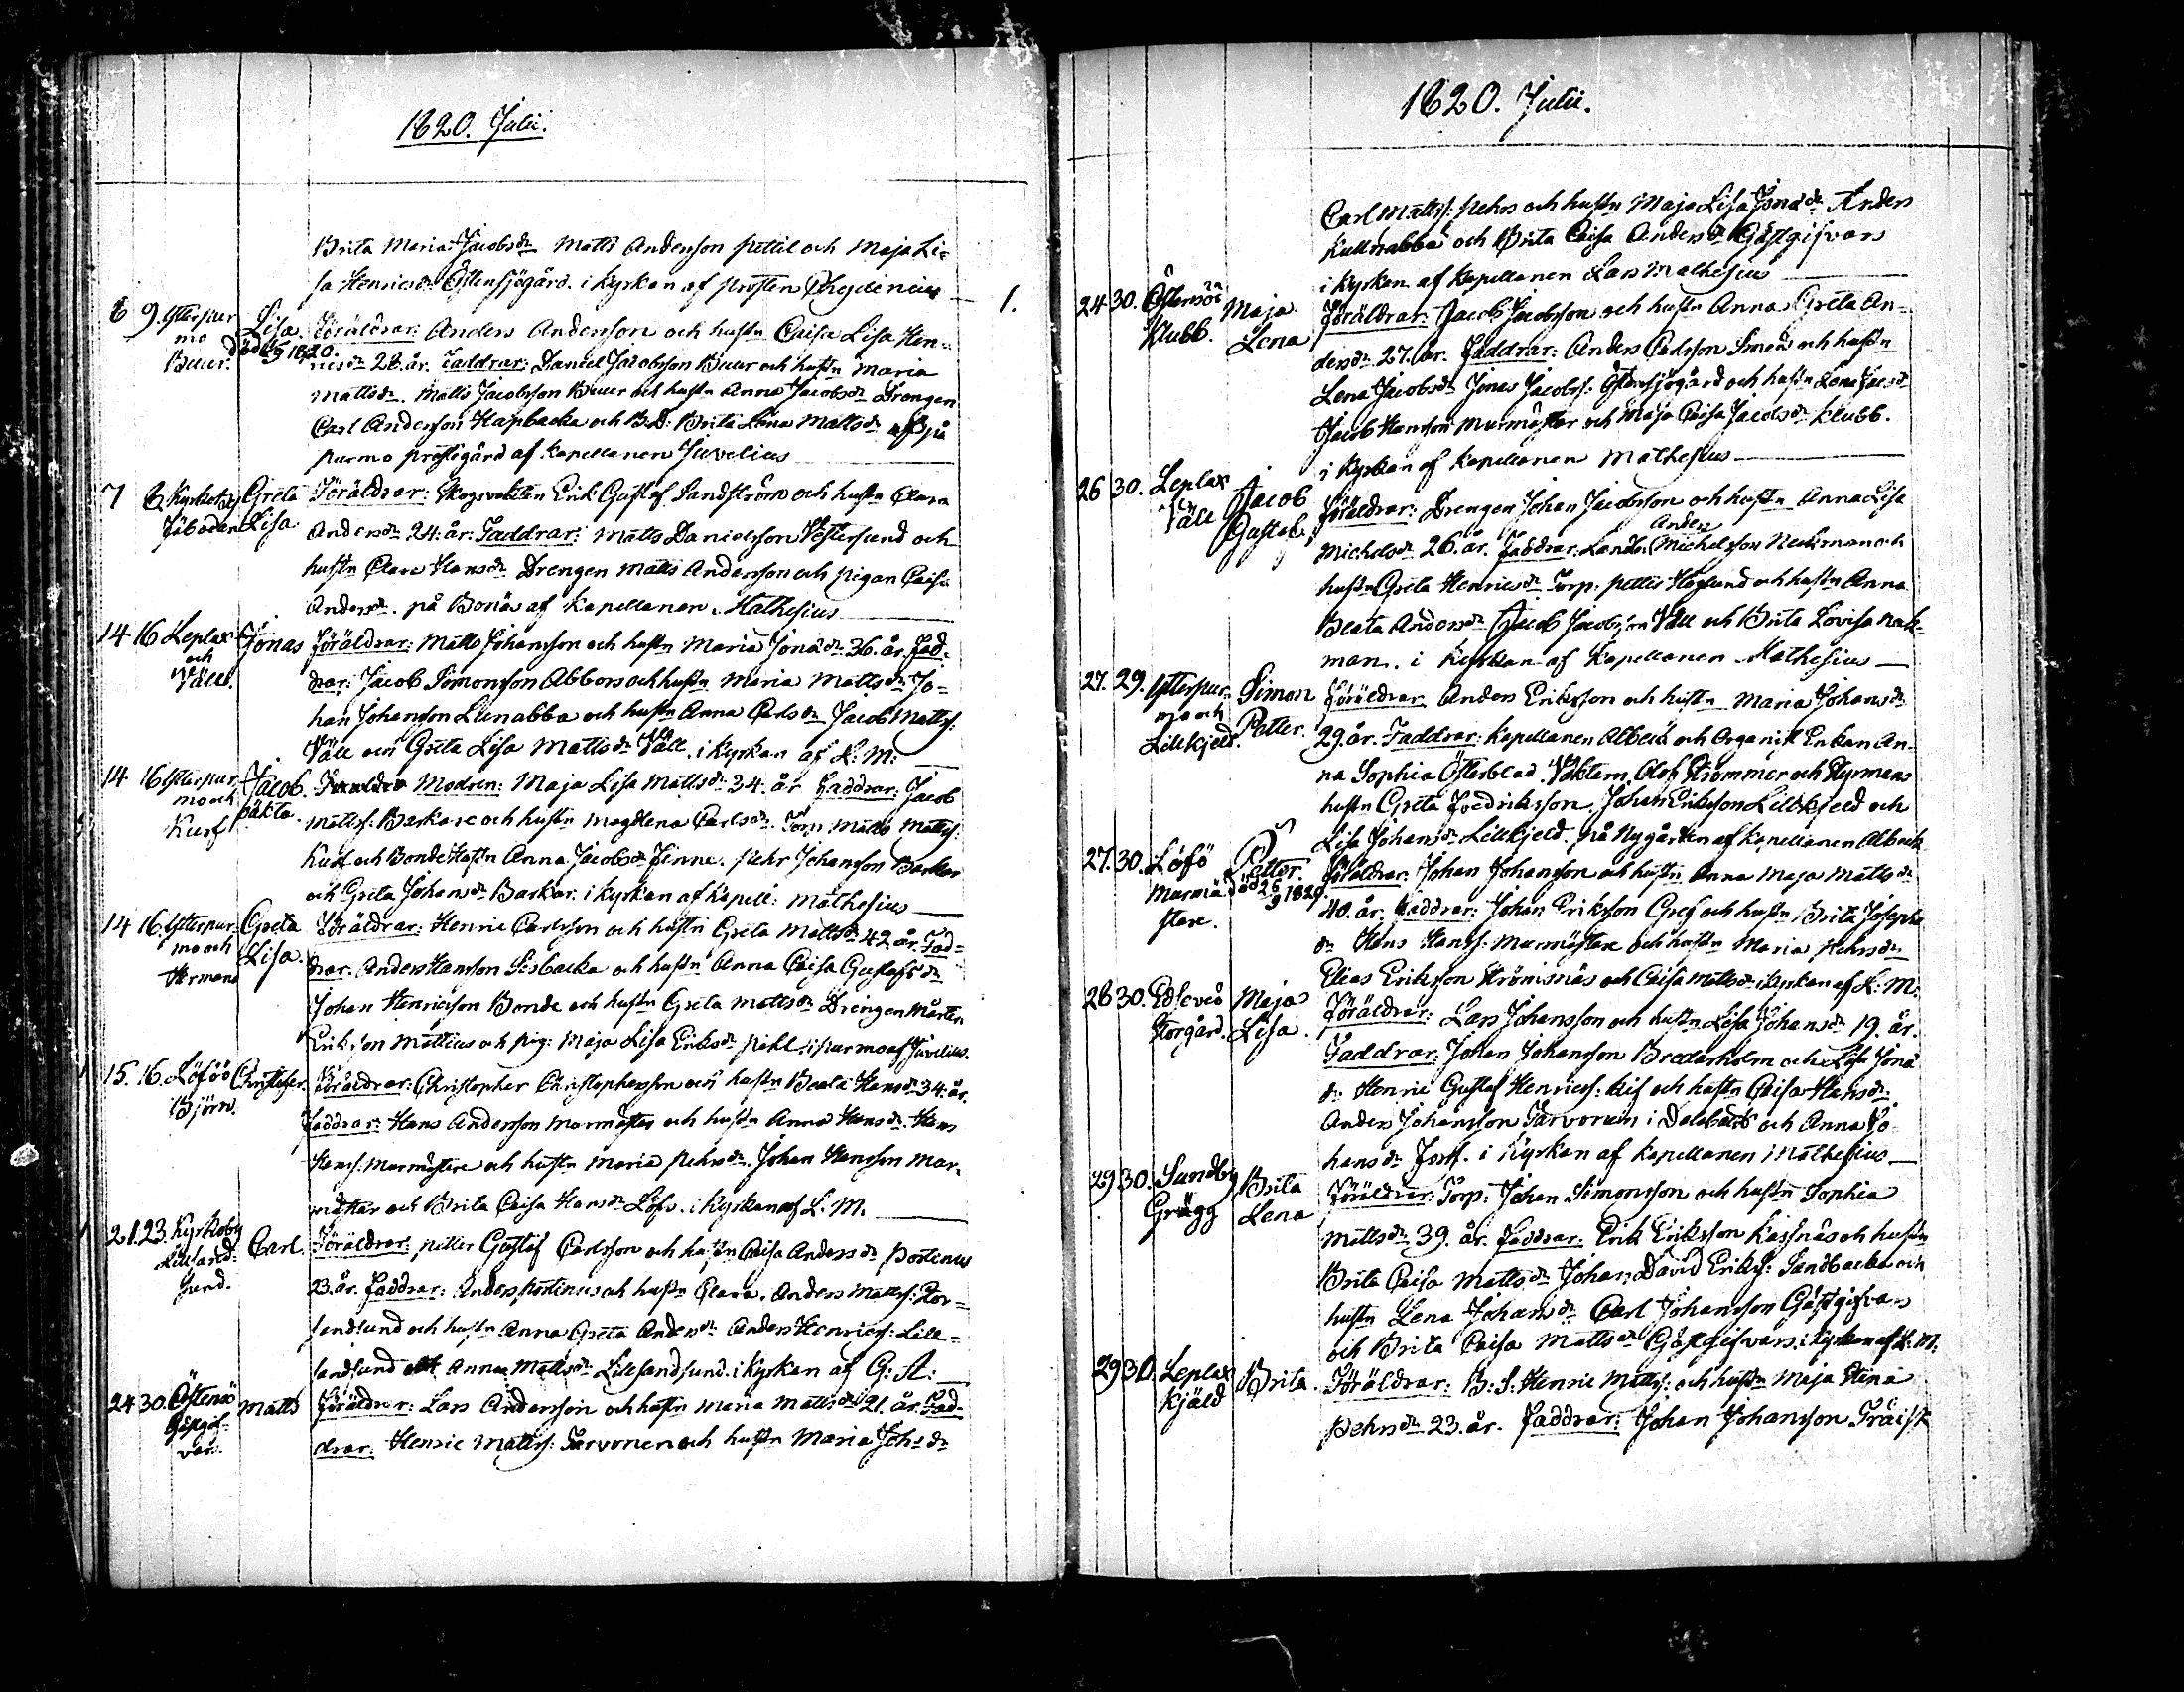 1820. Julii.
Brita Maria Jacobsdr Matts Anderson pettil och Maja Li=
sa Henricsdr Östensjögård. i kyrkan af prosten Chydenius
6 9. Ytterpur Lisa Föräldrar: Anders Anderson och hustn Caisa Lisa Hen=
mo död 1820. ricsdr 28. år. Faddrar: Daniel Jacobsson Buur och hustn Maria
Buur. Mattsdr. Matts Jacobsson Buur och hustn Anna Jacobsdr Drengen
Carl Anderson Hapbacka och B.D: Brita Lena Mattsdr på
purmo prostegård af Kapellanen Juvelius
1.
7 8 Kyrkoby Greta Föräldrar: Skogsvakten Erik Gustaf Sandström och hustn Clara
Fäboden Lisa Andersdr 24. år: Faddrar: Matts Danielsson Vestersund och
hustn Clara Hansdr Drengen Matts Anderson och pigan Caisa
Andersdr. på Bonäs af Kapellanen Mathesius
14 16 Leplax Jonas Föräldrar: Matts Johanson och hustn Maria Jonædr 36. år. Fad=
och drar: Jacob Simonson Abbors och hustn Maria Mattsdr Jo=
Väll. han Johanson Lunabba och hustn Anna Carlsdr Jacob Mattss:
Väll och Greta Lisa Mattsdr Väll. i kyrkan af L: M:
14 16 Ytterpur Jacob. Modren: Maja Lisa Mattsdr 34. år Faddrar: Jacob
mo och oäkta. Mattss: Barkare och hustn Magdlena Carlsdr. Torp: Matts Mattss:
Kurf Kurf och Bonde Hustn Anna Jacobsdr Finne. Pehr Johanson Barkar
och Greta Johansdr Barkar. i kyrkan af Kapell: Mathesius
14 16. Ytterpur Greta Föräldrar: Henric Carlsson och hustn Greta Mattsdr 42 år. Fad=
mo och Lisa. drar: Anders Hanson Sisbacka och hustn Anna Caisa Gustafsdr
Hermans Johan Henricson Bonde och hustn Greta Mattsdr Drengen Mårten
Erikson Mattius och pig: Maja Lisa Eriksdr pihl. i purmo af Juvelius.
15. 16. Löföö Christofer. Föräldrar: Christopher Christophersson och hustn Beata Hansdr 34. år.
Björn. Faddrar: Hans Anderson Murmästar och hustn Anna Hansdr. Hans
Hanss: Murmästare och hustn Maria Pehrsdr. Johan Hanson Mur=
mästar och Brita Caisa Hansdr Löfö. i kyrkan af L. M.
21. 23. Kyrkoby Carl. Föräldrar: Petter Gustaf Carlsson och hustn Caisa Andersdr Portinus
Lillsand= 23. år. Faddrar: Anders portinus och hustn Clara. Anders Mattss: Stor=
sund. sandsund och hustn Anna Greta Andersdr Anders Henrics: Lill=
sandsund och Anna Mattsdr Lillsandsund. i kyrkan af G: A:
24 30. Östensö Matts Föräldrar: Lars Anderson och hustn Maria Mattsdr 21. år. Fad=
Gästgif= drar: Henric Mattss: Tarvonen och hustn Maria Johsdr
var.
1820. Julii.
Carl Mattss: Pehrs och hustn Maja Lisa Jonædr Anders
Kullnabba och Brita Caisa Andersdr Gästgifvars
i kyrkan af Kapellanen Lars Mathesius
24 30. Östensö Maja Föräldrar: Jacob Jacobsson och hustn Anna Greta An=
Klubb. Lena dersdr 27. år. Faddrar: Anders Carlsson Smeds och hustn
Lena Jacobsdr Jonas Jacobss: Östensjögård och hustn Lena Jacsdr
Jacob Hanson Murmästar och Maja Caisa Jacobsdr Klubb.
i kyrkan af Kapellanen Mathesius
26 30. Leplax Jacob Föräldrar: Drengen Johan Jacobsson och hustn Anna Lisa
Väll Gustaf Michelsdr 26. år. Faddrar: Landb: Anders Michelsson Neckman och
hustn Greta Henricsdr Torp. petter Höglund och hustn Anna
Beata Andersdr Jacob Jacobsson Väll och Brita Lovisa Nek=
man. i kyrkan af Kapellanen Mathesius
27. 29. Ytterpur Simon Föräldrar Anders Erikson och hustn Maria Johansdr
mo och Petter. 29. år. Faddrar: Kapellanen Albeck och Organist Enkan An=
Lillkjeld. na Sophia Österblad. Väktarn Olof Strömmer och Styrmans
hustn Greta Fredriksson Johan Erikson Lillkjeld och
Lisa Johansdr Lillkjeld. på Nygården af Kapellanen Albeck
27. 30. Löfö Petter. Föräldrar: Johan Johanson och hustn Anna Maja Mattsdr
Murmä= död 26/9 1820. 40. år. Faddrar: Johan Erikson Gref och hustn Brita Josephs
stare. dr Hans Hanss: Murmästare och hustn Maria Pehrsdr
Elias Erikson Strömsnäs och Caisa Mattsdr i kyrkan af L: M:
28 30. Edsevö Maja Föräldrar: Lars Johansson och hustn Lisa Johansdr 19. år.
Storgård. Lisa. Faddrar: Johan Johanson Brederholm och Lisa Jonæ
dr Henric Gustaf Henricss: och hustn Caisa Hansdr
Anders Johansson Tarvonen i Dalabäck och Anna Jo=
hansdr Forss. i kyrkan af Kapellanen Mathesius
29 30. Sundby Brita Föräldrar: Torp: Johan Simonsson och hustn Sophia
Grägg Lena Mattsdr 39. år. Faddrar: Erik Erikson Kasnäs och hustn
Brita Caisa Mattsdr Johan David Erikss: Sandbacka och
hustn Lena Johansdr Carl Johansson Gästgifvars
och Brita Caisa Mattsdr Gästgifvars. i kyrkan af L: M:
29 30. Leplax Brita. Föräldrar: B: S: Henric Mattss: och hustn Maja Stina
Kjäld Pehrsdr 23. år. Faddrar: Johan Johanson Träisk